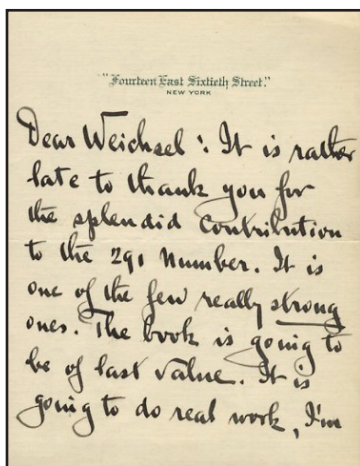 "Fourteen East Sixtieth Street."
NEW YORK
Dear Weichsel: It is rather
late to thank you for
the splendid Contribution
to the 291 Number. It is
one of the few really strong
ones. The book is going to
be of last value. It is
going to do real work, I'm